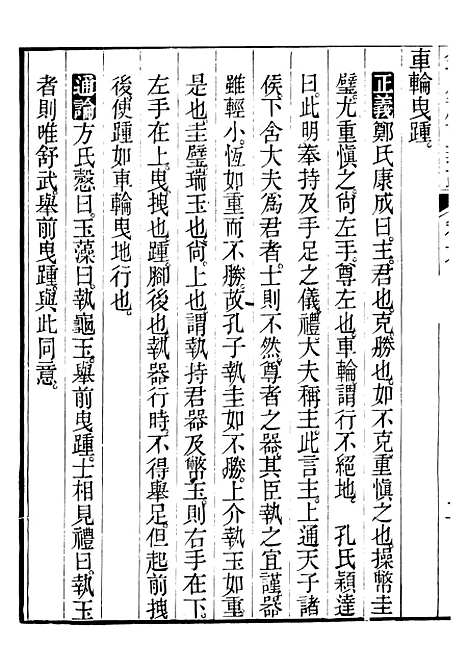 車輪曳踵
正義鄭氏康成曰主君也克勝也如不克重愼之也操幣圭
璧尤重愼之尚左手尊左也車輪謂行不絕地　孔氏穎達
曰此明奉持及手足之儀禮大夫稱主此言主上通天子諸
侯下含大夫爲君者士則不然尊者之器其臣執之宜謹器
雖輕小恆如重而不勝故孔子執圭如不勝上介執玉如重
是也圭璧瑞玉也尚上也謂執持君器及幣玉則右手在下
左手在上曳拽也踵腳後也執器行時不得舉足但起前拽
後使踵如車輪曳地行也
通論方氏慤曰玉藻曰執龜玉舉前曳踵士相見禮曰執玉
者則唯舒武舉前曳踵與此同意